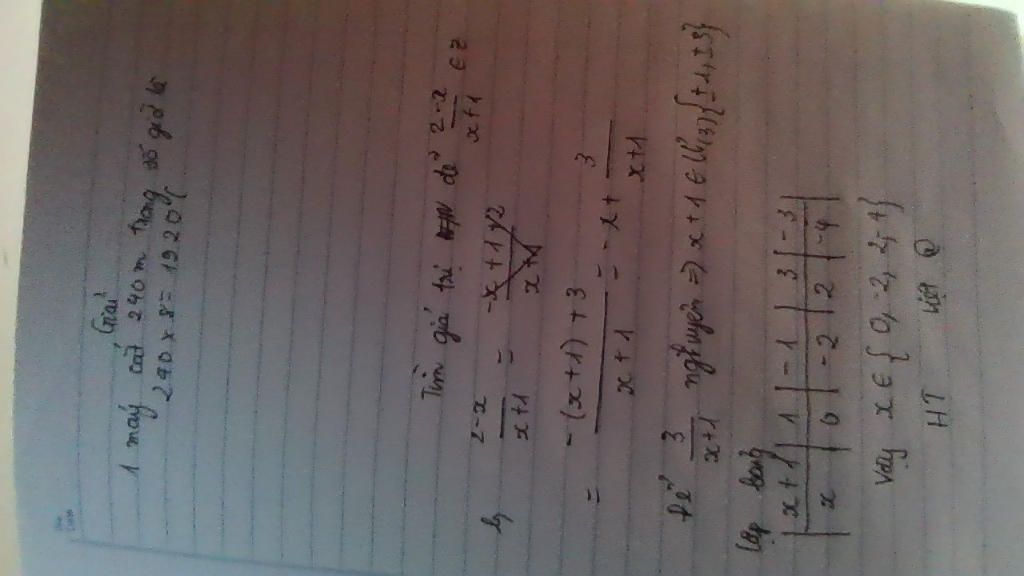 Giải
1 máy cắt 240 m trong số giờ là
240 x 8 = 1920
Tìm giá trị để 2-x / x+1 ∈ Z
2-x / x+1 = -x + 1 / x+1
= -(x+1) + 3 / x+1 = -1 + 3 / x+1
Để 3 / x+1 nguyên => x+1 ∈ Ư(3) {±1, ±3}
Lập bảng
x+1 | 1 | -1 | 3 | -3
x | 0 | -2 | 2 | -4
Vậy x ∈ { 0, -2, 2, -4}
HT